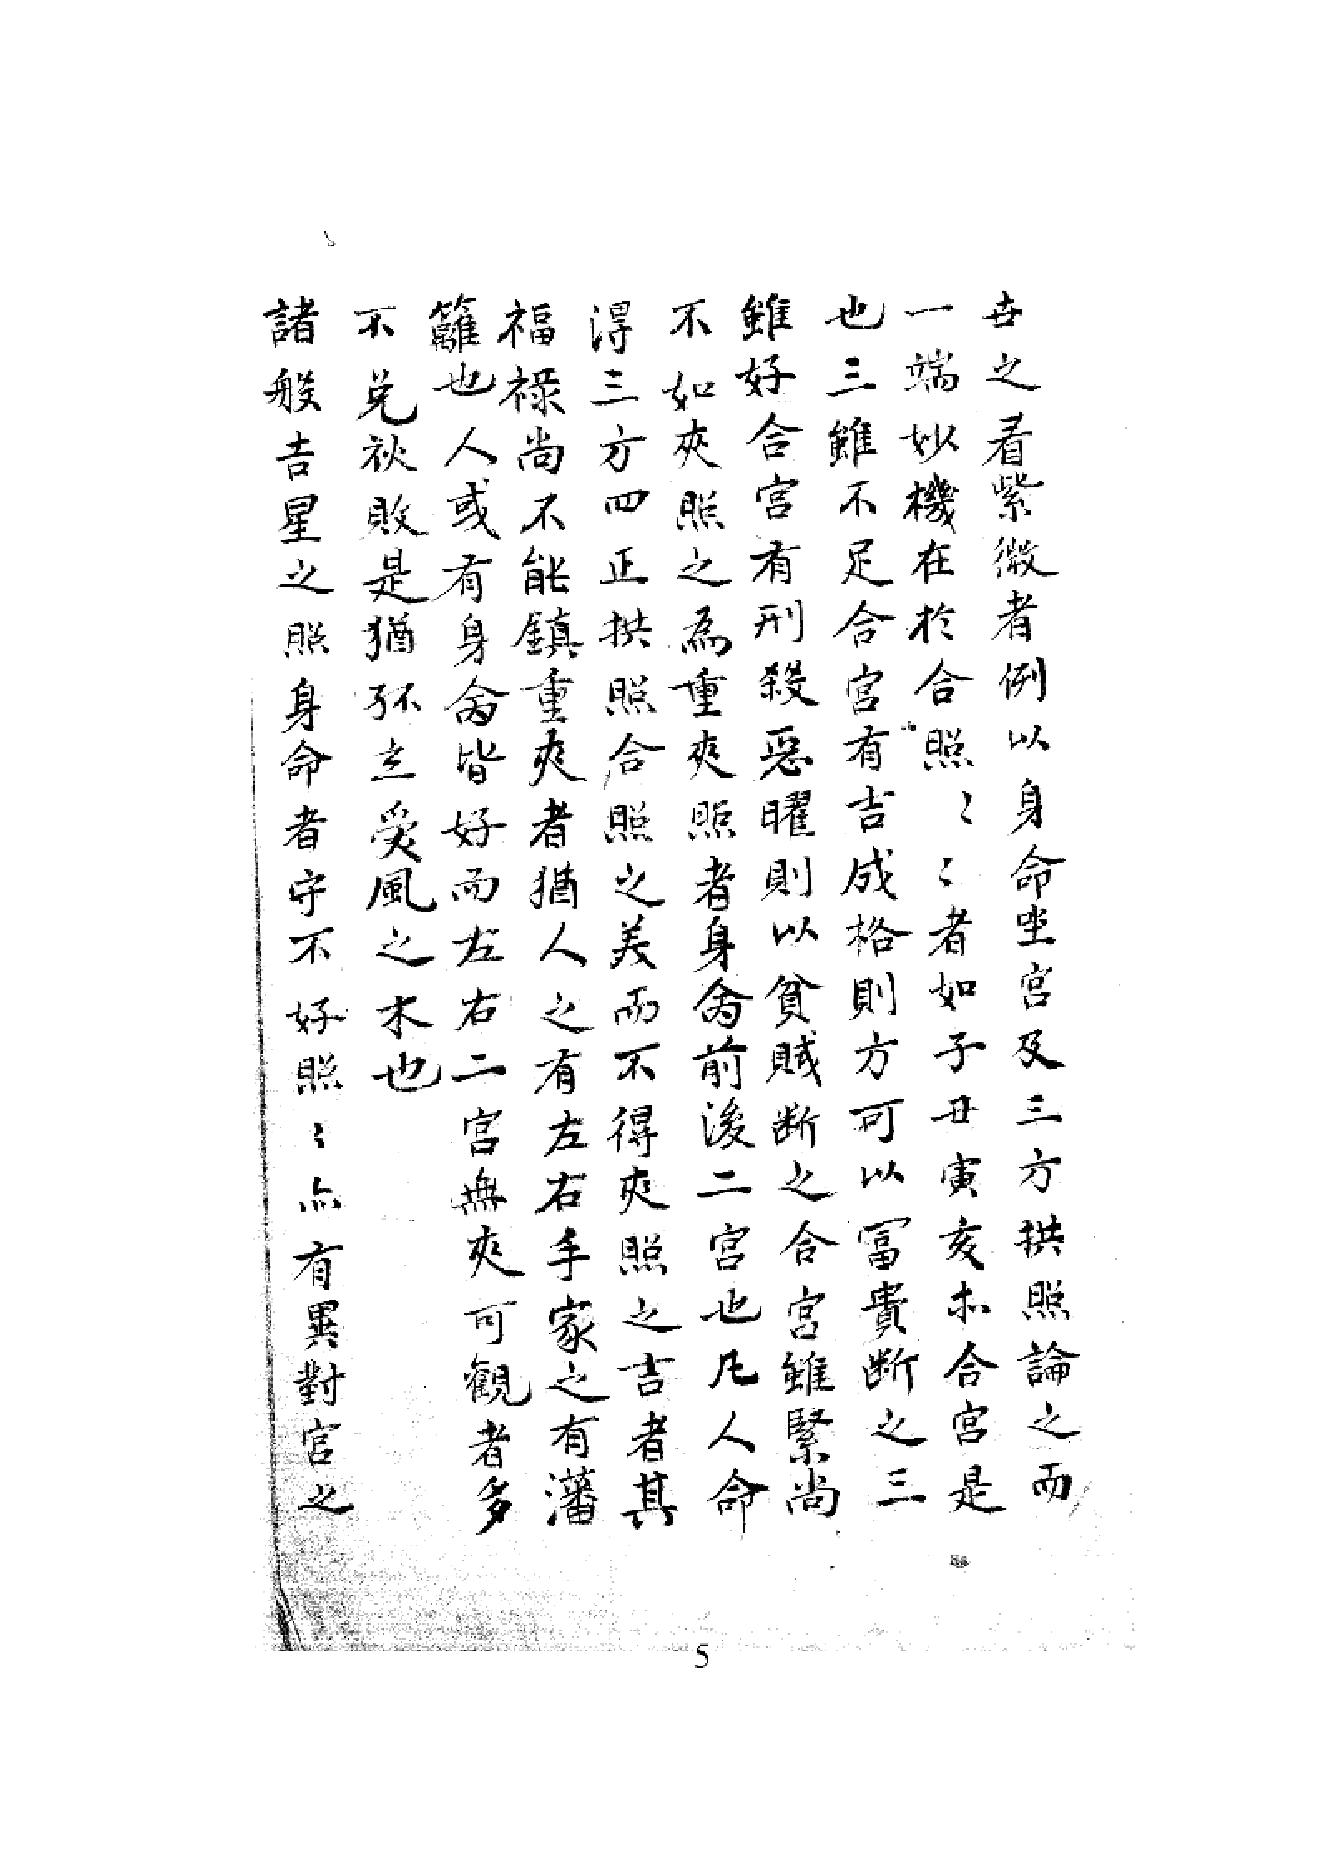 世之看紫微者例以身命坐宮及三方拱照論之而
一端妙機在於合照〻〻者如子丑寅亥木合宮是
也三雖不足合宮有吉成格則方可以冨貴断之三
雖好合宮有刑殺惡曜則以貧賎断之合宮雖緊尚
不如夾照之為重夾照者身命前後二宮也凡人命
得三方四正拱照合照之美而不得夾照之吉者其
福禄尚不能鎮重夾者猶人之有左右手家之有藩
籬也人或有身命皆好而左右二宮無夾可觀者多
不免敗是猶孤立受風之木也
諸般吉星之照身命者守不好照〻亦有異對宮之
5